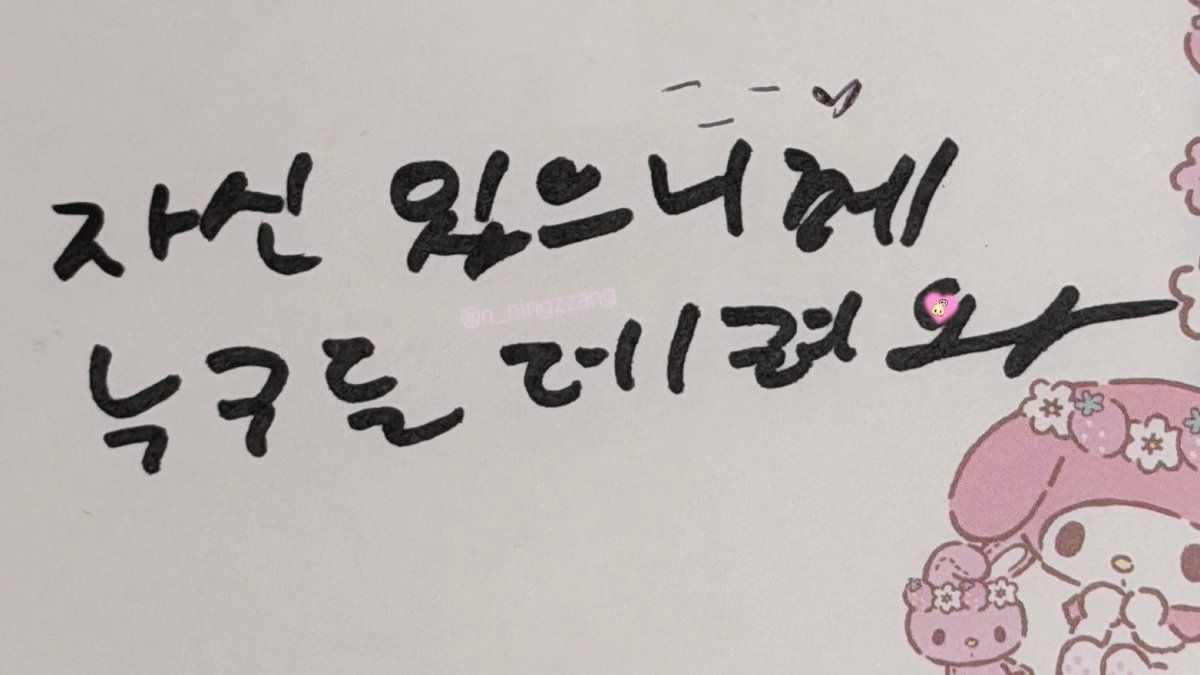 자신 있으니께
늑구들 데려와
@n__ningzzang